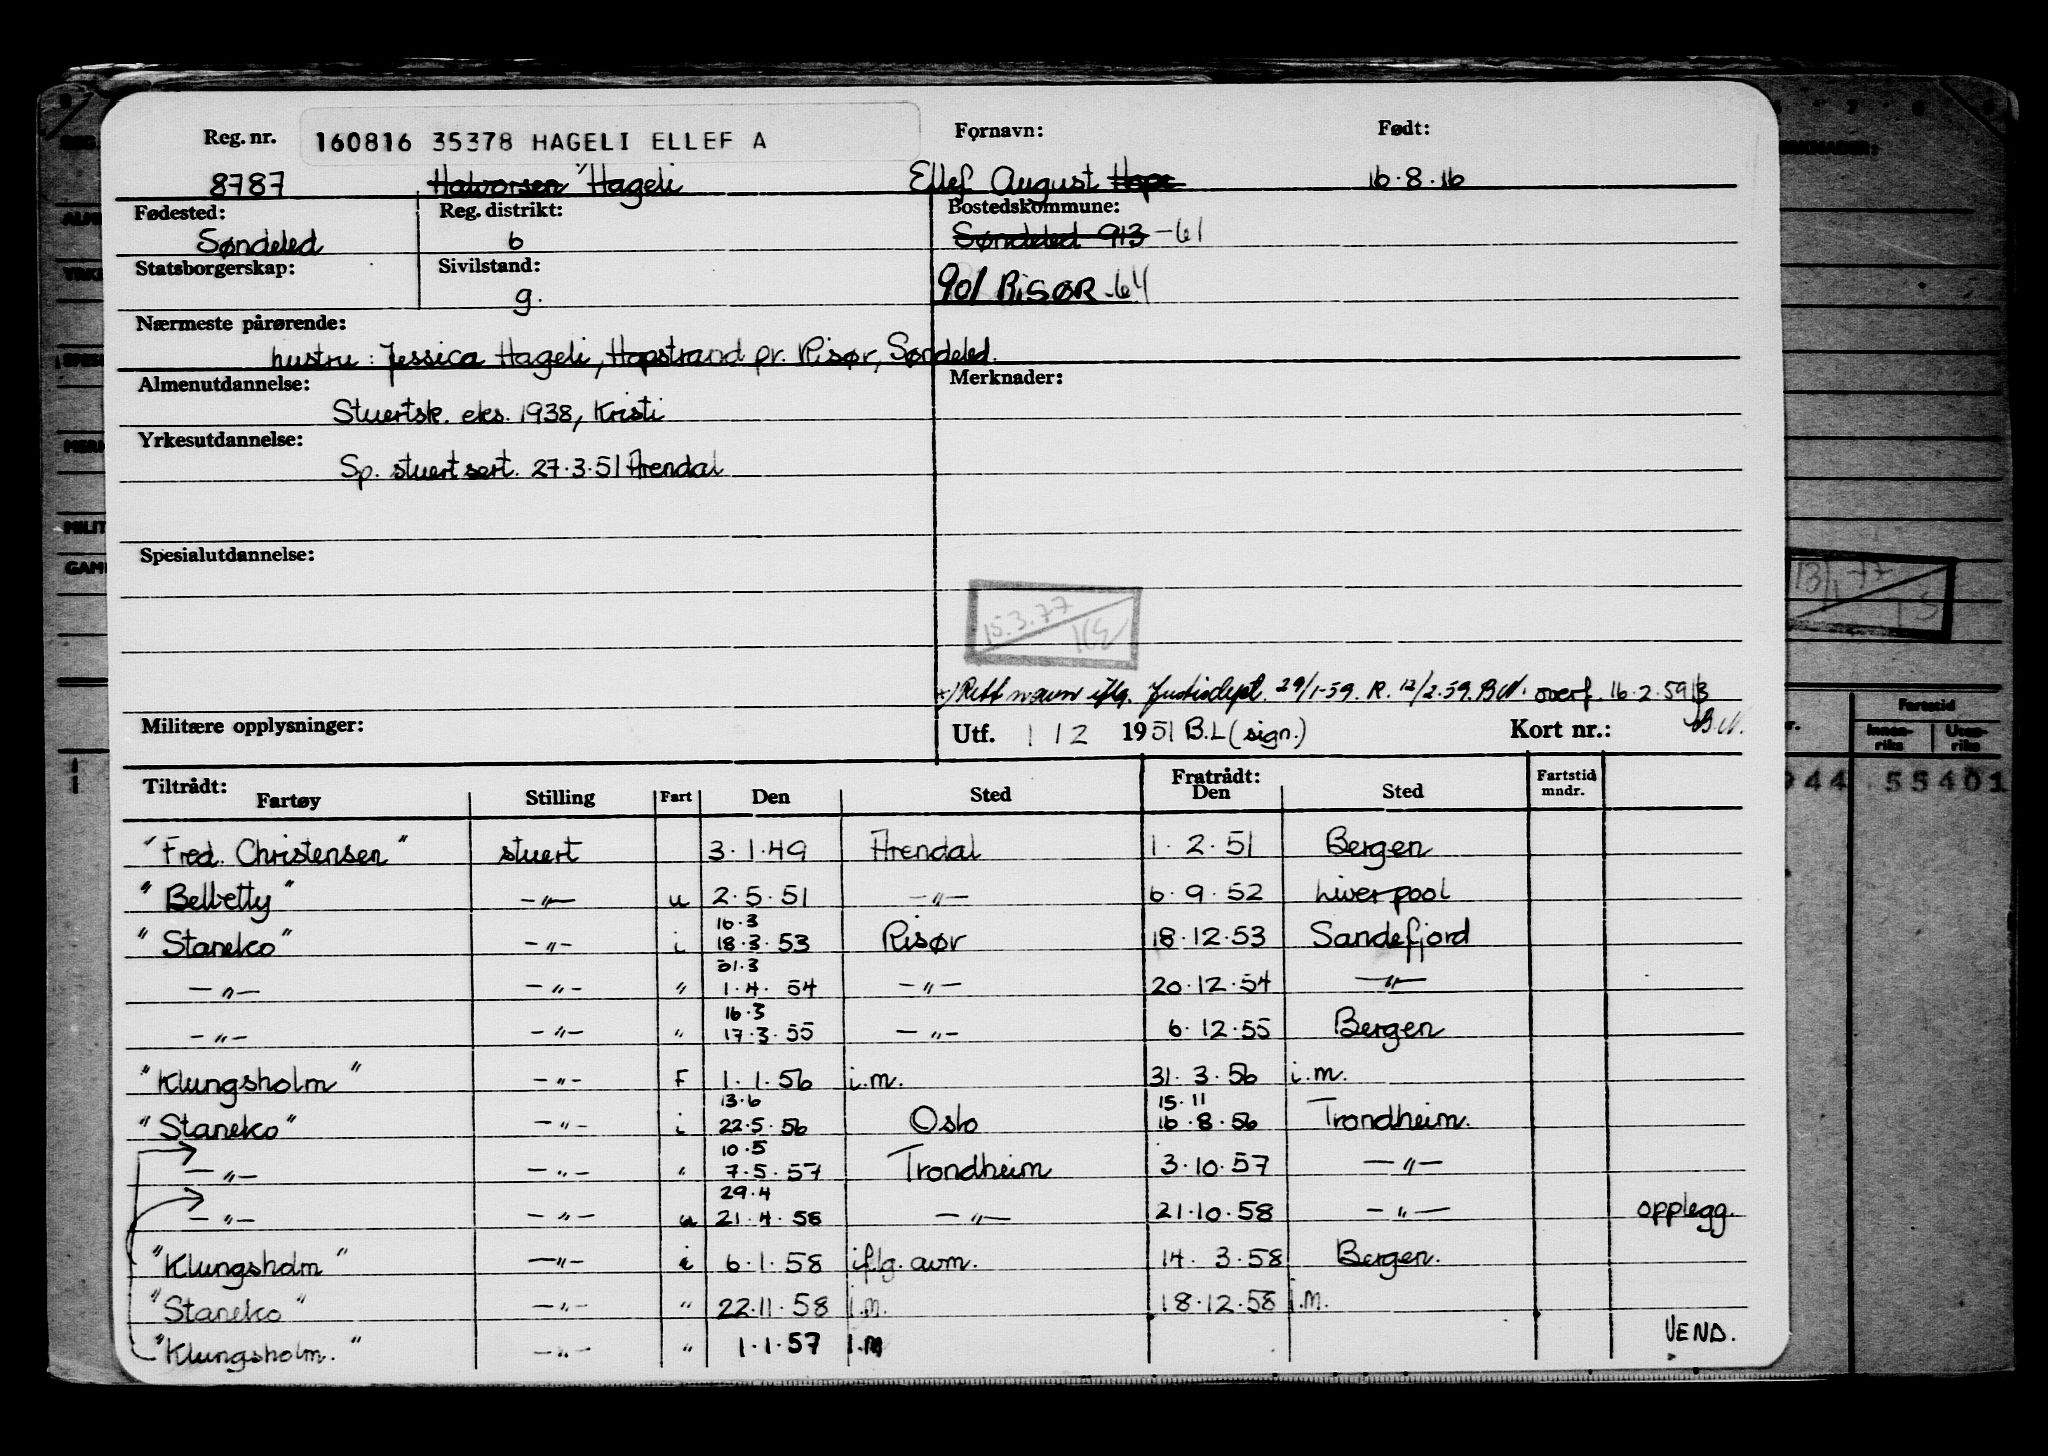 Reg. nr. 160816 35378 HAGELI ELLEF A Fornavn: Født:
8787 Halvorsen Hageli Ellef August Hope 16.8.16
Fødested: Reg. distrikt: Bostedskommune:
Søndeled 6 Søndeled 913 -61
Statsborgerskap: Sivilstand:
g. 901 RISØR -64
Nærmeste pårørende:
hustru: Jessica Hageli, Hopstrand pr. Risør, Søndeled.
Almenutdannelse: Merknader:
Stuertsk. eks. 1938, Kristi
Yrkesutdannelse:
Sp. stuertsert. 27.3.51 Arendal
Spesialutdannelse:
15.3.77
x) Rett navn iflg. Justisdept. 29/1-59. R. 12/2.59. BN. overf. 16.2.59
Militære opplysninger: Utf. 1 12 1951 B.L (sign.) Kort nr.: BN.
Tiltrådt: Fratrådt:
Fartøy Stilling Fart Den Sted Den Sted Fartstid mndr.
"Fred. Christensen" stuert 3.1.49 Arendal 1.2.51 Bergen
"Belbetty" -"- u 2.5.51 -"- 6.9.52 Liverpool
16.3
"Stareko" -"- i 18.3.53 Risør 18.12.53 Sandefjord
31.3
-"- -"- " 1.4.54 -"- 20.12.54 -"-
16.3
-"- -"- " 17.3.55 -"- 6.12.55 Bergen
"Klungsholm" -"- F 1.1.56 i.m. 31.3.56 i.m.
13.6 15.11
"Stareko" -"- i 22.5.56 Oslo 16.8.56 Trondheim.
10.5
-"- -"- " 7.5.57 Trondheim 3.10.57 -"-
29.4
-"- -"- u 21.4.58 -"- 21.10.58 -"- opplegg.
"Klungsholm" -"- i 6.1.58 iflg. avm. 14.3.58 Bergen.
"Stareko" -"- " 22.11.58 i.m. 18.12.58 i.m.
"Klungsholm." -"- " 1.1.57 i.m VEND.
13/1 77
Fartstid
Innen-riks Uten-riks
944 55401